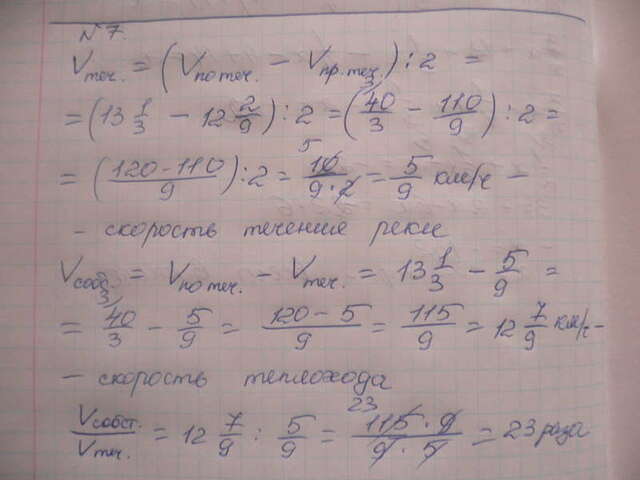 №7.
Vтеч. = (Vпо теч. – Vпр. теч.) : 2 =
= (13 1/3 – 12 2/9) : 2 = (40/3 – 110/9) : 2 =
= ((120-110)/9) : 2 = 10/(9·2) = 5/9 км/ч –
– скорость течения реки
Vсобс. = Vпо теч. – Vтеч. = 13 1/3 – 5/9 =
= 40/3 – 5/9 = (120-5)/9 = 115/9 = 12 7/9 км/ч –
– скорость теплохода
Vсобст./Vтеч. = 12 7/9 : 5/9 = (115·9)/(9·5) = 23 раза